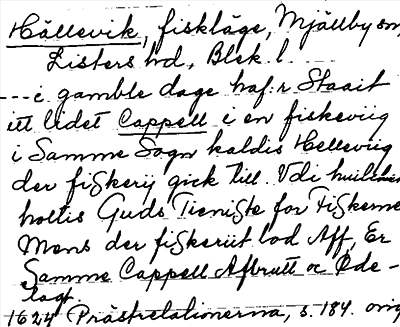 Hällevik, fiskläge, Mjällby sn,
Listers hd, Blek. l.
--- i gamble dage haf:r Staait
itt lidet Cappell i en fiskeviig
i Samme Sogn kaldis Helleviig
der fiskerij gick till. Vdi huilcken
holtis Guds Tieniste for Fiskerne
Mens der fiskeriit lod Aff, Er
Samme Cappell Afbrutt oc Øde-
lagt.
1624 Prästrelationerna, s. 184. orig